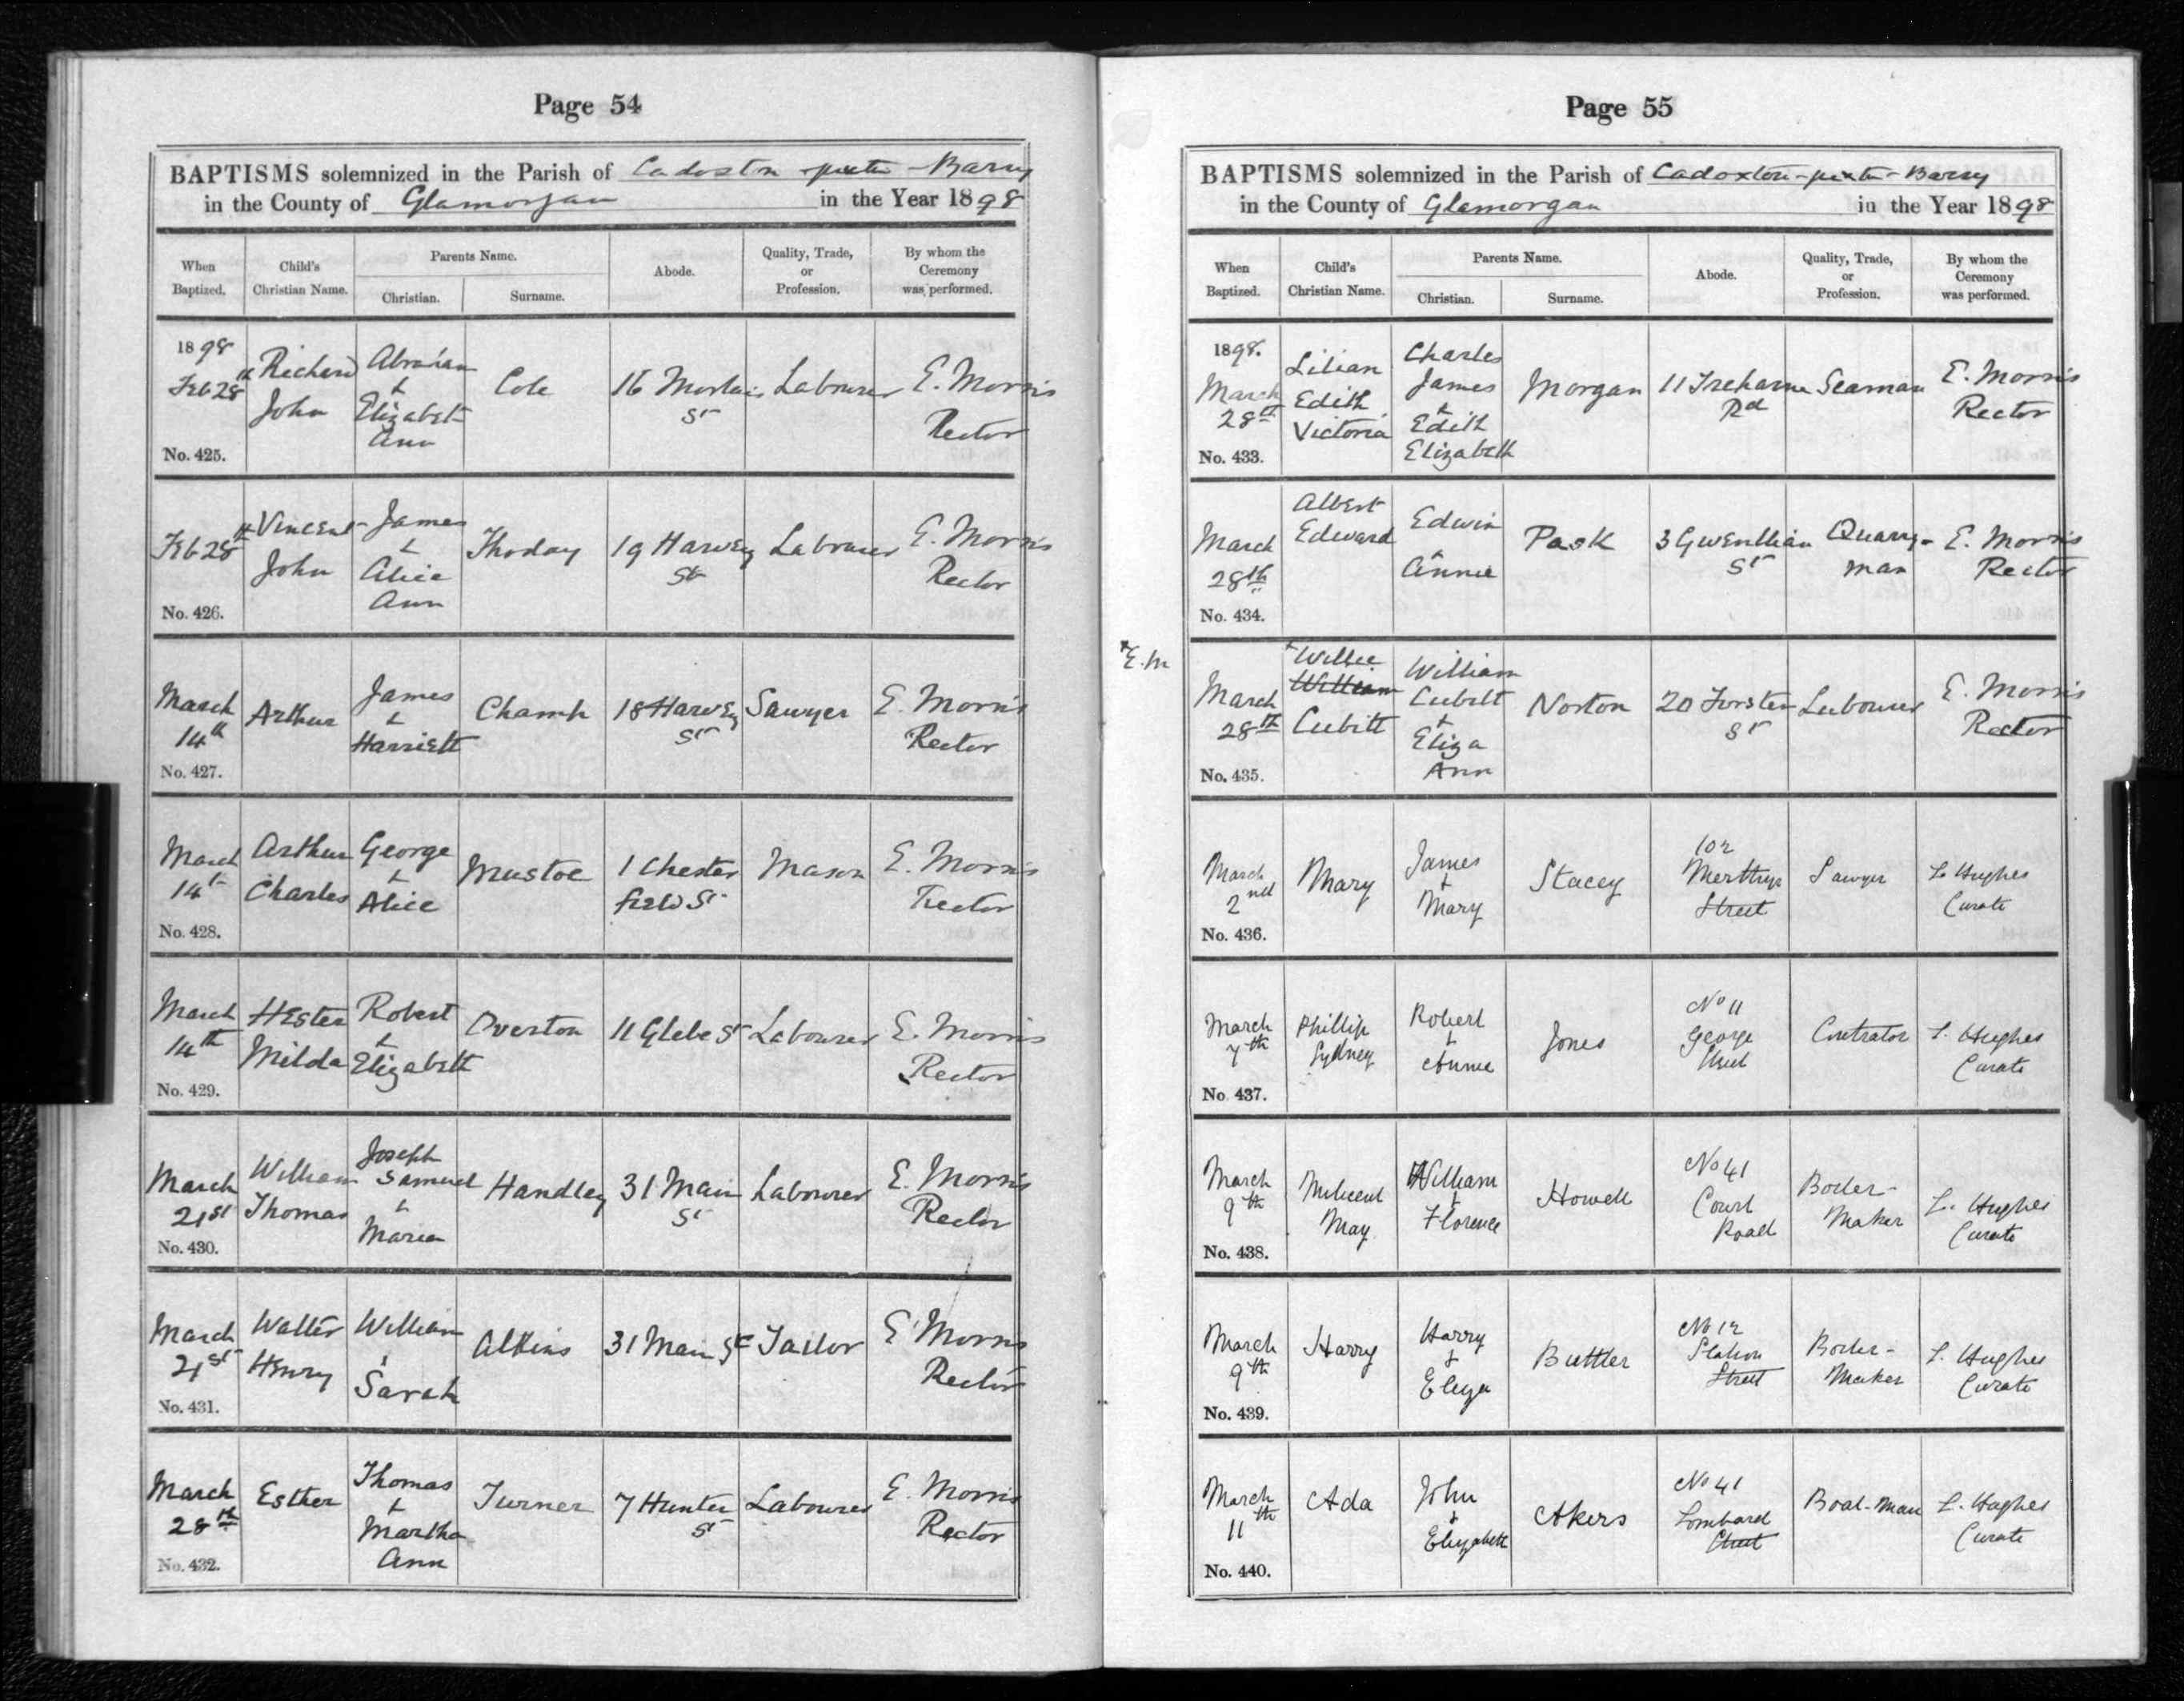 Page 54
BAPTISMS solemnized in the Parish of Cadoxton-juxta-Barry
in the County of Glamorgan in the Year 1898
When Baptized. Child's Christian Name. Parents Name. Christian. Surname. Abode. Quality, Trade, or Profession. By whom the Ceremony was performed.
1898 Feb 28th Richard John Abraham & Elizabeth Ann Cole 16 Morlais St Labourer E. Morris Rector
No. 425.
Feb 28th Vincent John James & Alice Ann Thoday 19 Harvey St Labourer E. Morris Rector
No. 426.
March 14th Arthur James & Harriett Champ 18 Harvey St Sawyer E. Morris Rector
No. 427.
March 14th Arthur Charles George & Alice Mustoe 1 Chesterfield St Mason E. Morris Rector
No. 428.
March 14th Hester Milda Robert & Elizabeth Overton 11 Glebe St Labourer E. Morris Rector
No. 429.
March 21st William Thomas Joseph Samuel & Maria Handley 31 Main St Labourer E. Morris Rector
No. 430.
March 21st Walter Henry William & Sarah Atkins 31 Main St Tailor E. Morris Rector
No. 431.
March 28th Esther Thomas & Martha Ann Turner 7 Hunter St Labourer E. Morris Rector
No. 432.
Page 55
BAPTISMS solemnized in the Parish of Cadoxton-juxta-Barry
in the County of Glamorgan in the Year 1898
When Baptized. Child's Christian Name. Parents Name. Christian. Surname. Abode. Quality, Trade, or Profession. By whom the Ceremony was performed.
1898. March 28th Lilian Edith Victoria Charles James & Edith Elizabeth Morgan 11 Treharne Rd Seaman E. Morris Rector
No. 433.
March 28th Albert Edward Edwin & Annie Pask 3 Gwenllian St Quarry-man E. Morris Rector
No. 434.
*E.M
March 28th *Willie William Cubitt William Cubitt & Eliza Ann Norton 20 Forster St Labourer E. Morris Rector
No. 435.
March 2nd Mary James & Mary Stacey 102 Merthyr Street Sawyer L. Hughes Curate
No. 436.
March 7th Phillip Sydney Robert & Annie Jones No 11 George Street Contrator L. Hughes Curate
No. 437.
March 9th Milicent May William & Florence Howell No 41 Court Road Boiler-Maker L. Hughes Curate
No. 438.
March 9th Harry Harry & Eliza Buttler No 12 Station Street Boiler-Maker L. Hughes Curate
No. 439.
March 11th Ada John & Elizabeth Akers No 41 Lombard Street Boat-Man L. Hughes Curate
No. 440.